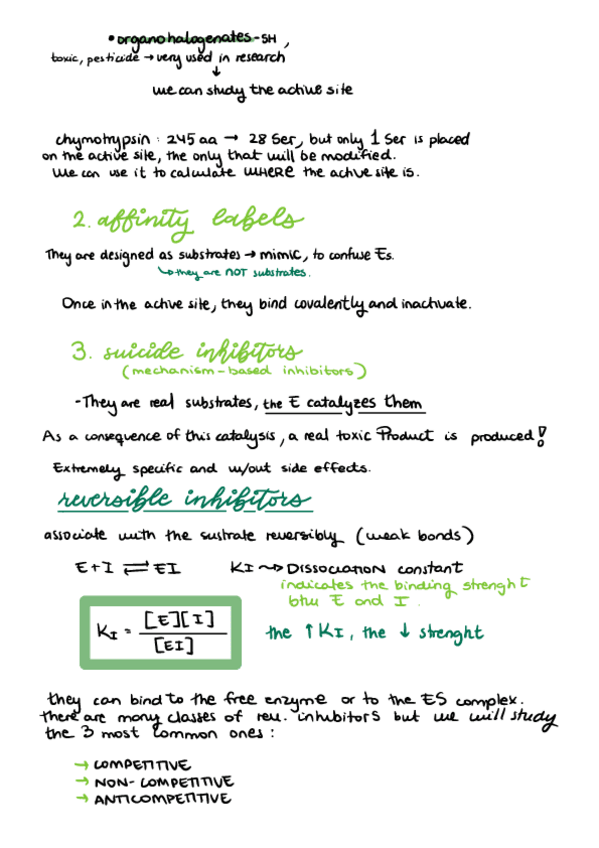 • organohalogenates - SH,
toxic, pesticide → very used in research
↓
we can study the active site
chymotrypsin : 245 aa → 28 Ser, but only 1 Ser is placed
on the active site, the only that will be modified.
We can use it to calculate WHERE the active site is.
2. affinity labels
They are designed as substrates → mimic, to confuse Es.
↳ they are NOT substrates.
Once in the active site, they bind covalently and inactivate.
3. suicide inhibitors
(mechanism-based inhibitors)
- They are real substrates, the E catalyzes them
As a consequence of this catalysis, a real toxic Product is produced!
Extremely specific and w/out side effects.
reversible inhibitors
associate with the sustrate reversibly (weak bonds)
E + I ⇌ EI KI ⇝ DISSOCIATION constant
indicates the binding strenght
btw E and I.
KI = [E][I] / [EI]
the ↑ KI, the ↓ strenght
they can bind to the free enzyme or to the ES complex.
there are many classes of rev. inhibitors but we will study
the 3 most common ones :
→ COMPETITIVE
→ NON-COMPETITIVE
→ ANTICOMPETITIVE